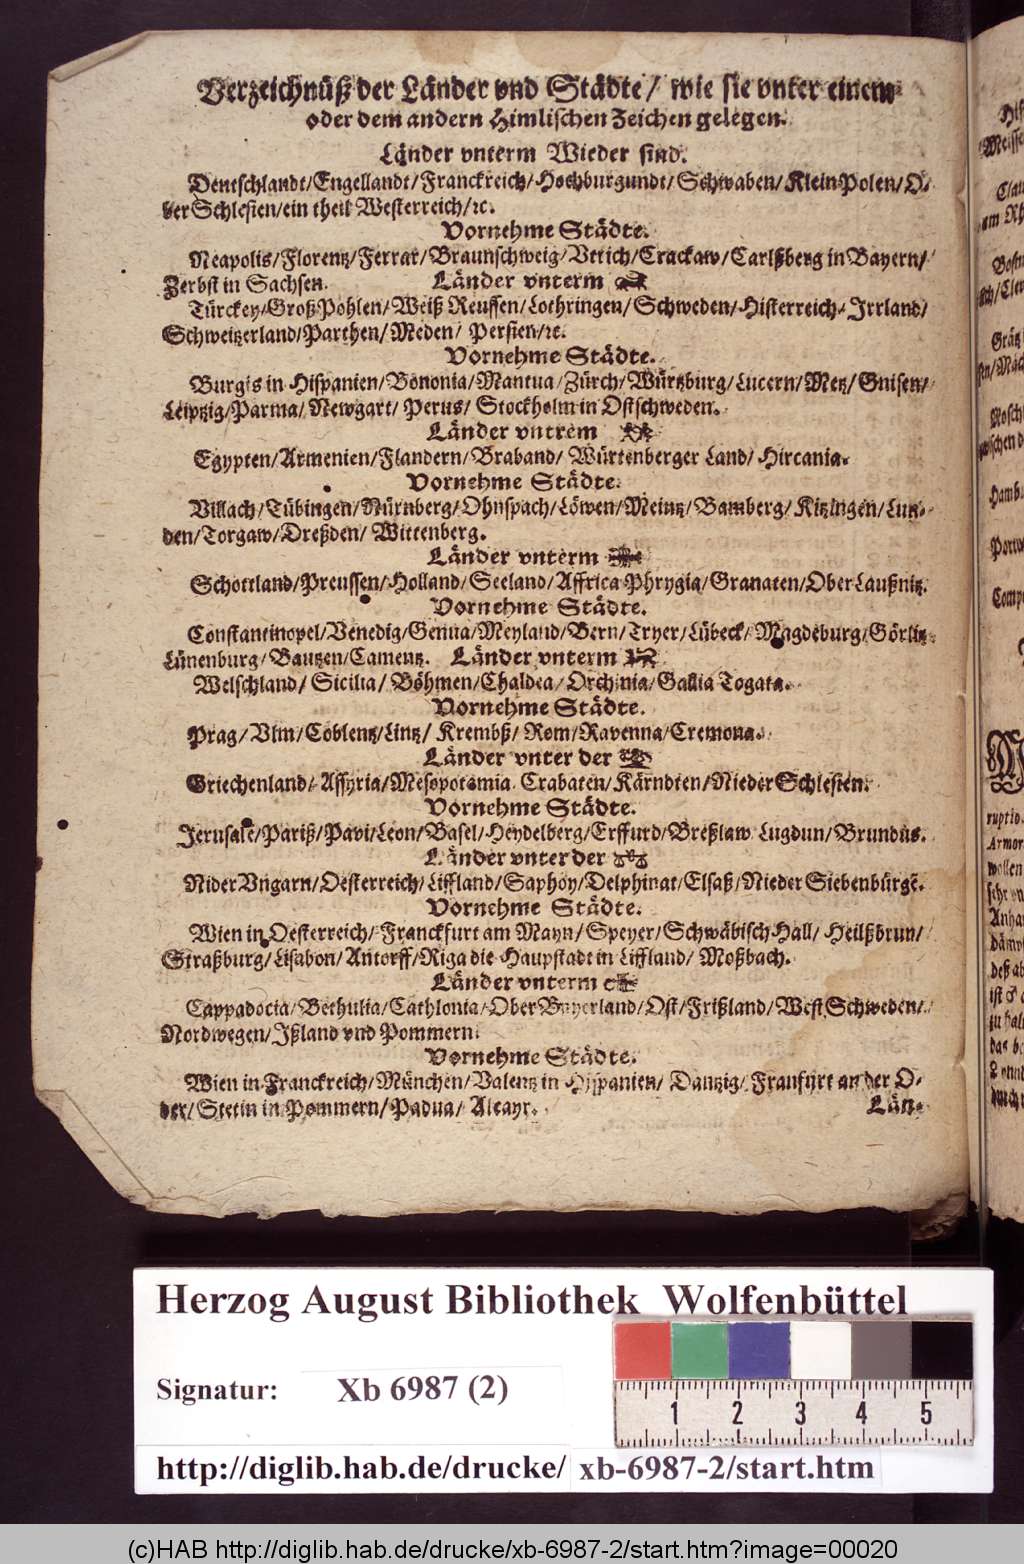 Verzeichnüß der Länder vnd Städte/ wie sie vnter einem
oder dem andern Himlischen Zeichen gelegen.
Länder vnterm Wieder sind.
Deutschlandt/Engellandt/Franckreich/Hochburgundt/Schwaben/KleinPolen/O-
berSchlesien/ein theil Westerreich/ꝛc.
Vornehme Städte.
Neapolis/Florentz/Ferrar/Braunschweig/Vtrich/Crackaw/Carlßberg in Bayern/
Zerbst in Sachsen. Länder vnterm
Türckey/GroßPohlen/Weiß Reussen/Lothringen/Schweden/Histerreich/Irrland/
Schweitzerland/Parthen/Meden/ Persien/ꝛc.
Vornehme Städte.
Burgis in Hispanien/Bononia/Mantua/Zürch/Würtzburg/Lucern/Metz/Gnisen/
Leiptzig/Parma/Newgart/ Perus/ Stockholm in Ostschweden.
Länder vntrem
Egypten/Armenien/Flandern/Braband/ Würtenberger Land/ Hircania.
Vornehme Städte.
Villach/Tübingen/Nürnberg/Ohnspach/Löwen/Meintz/Bamberg/Kitzingen/Lun-
den/Torgaw/Dreßden/ Wittenberg.
Länder vnterm
Schottland/Preussen/Holland/Seeland/Affrica Phrygia/Granaten/OberLaußnitz.
Vornehme Städte.
Constantinopel/Venedig/Genua/Meyland/Bern/Tryer/Lübeck/Magdeburg/Görlitz
Lünenburg/Bautzen/Camentz. Länder vnterm
Welschland/ Sicilia/ Böhmen/Chaldea/Orchinia/Gallia Togata.
Vornehme Städte.
Prag/Vlm/Coblentz/Lintz/ Krembß/ Rom/Ravenna/Cremona.
Länder vnter der
Griechenland/Assyria/Mesopotamia Crabaten/Kärndten/NiederSchlesien.
Vornehme Städte.
Jerusalē/Pariß/Pavi/Leon/Basel/Heydelberg/Erffurd/Breßlaw Lugdun/Brundus.
Länder vnter der
NiderVngarn/Oesterreich/Liffland/Saphoy/Delphinat/Elsaß/Nieder Siebenbürgē.
Vornehme Städte.
Wien in Oesterreich/Franckfurt am Mayn/Speyer/Schwäbisch Hall/ Heilßbrun/
Straßburg/Lisabon/Antorff/Riga die Haupstadt in Liffland/ Moßbach.
Länder vnterm
Cappadocia/Bethulia/Cathlonia/OberBayerland/Ost/Frißland/West Schweden/
Nordwegen/Jßland vnd Pommern.
Vornehme Städte.
Wien in Franckreich/München/Valentz in Hispanien/ Dantzig/Franfurt an der O-
der/Stetin in Pommern/Padua/ Alcayr.
Län-
Herzog August Bibliothek Wolfenbüttel
Signatur: Xb 6987 (2)
1 2 3 4 5
http://diglib.hab.de/drucke/ xb-6987-2/start.htm
(c)HAB http://diglib.hab.de/drucke/xb-6987-2/start.htm?image=00020